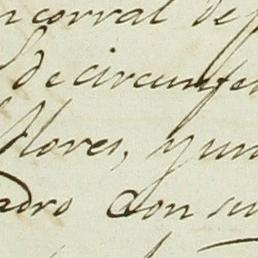 corral de
de circunfe
Flores, y un
adro con su